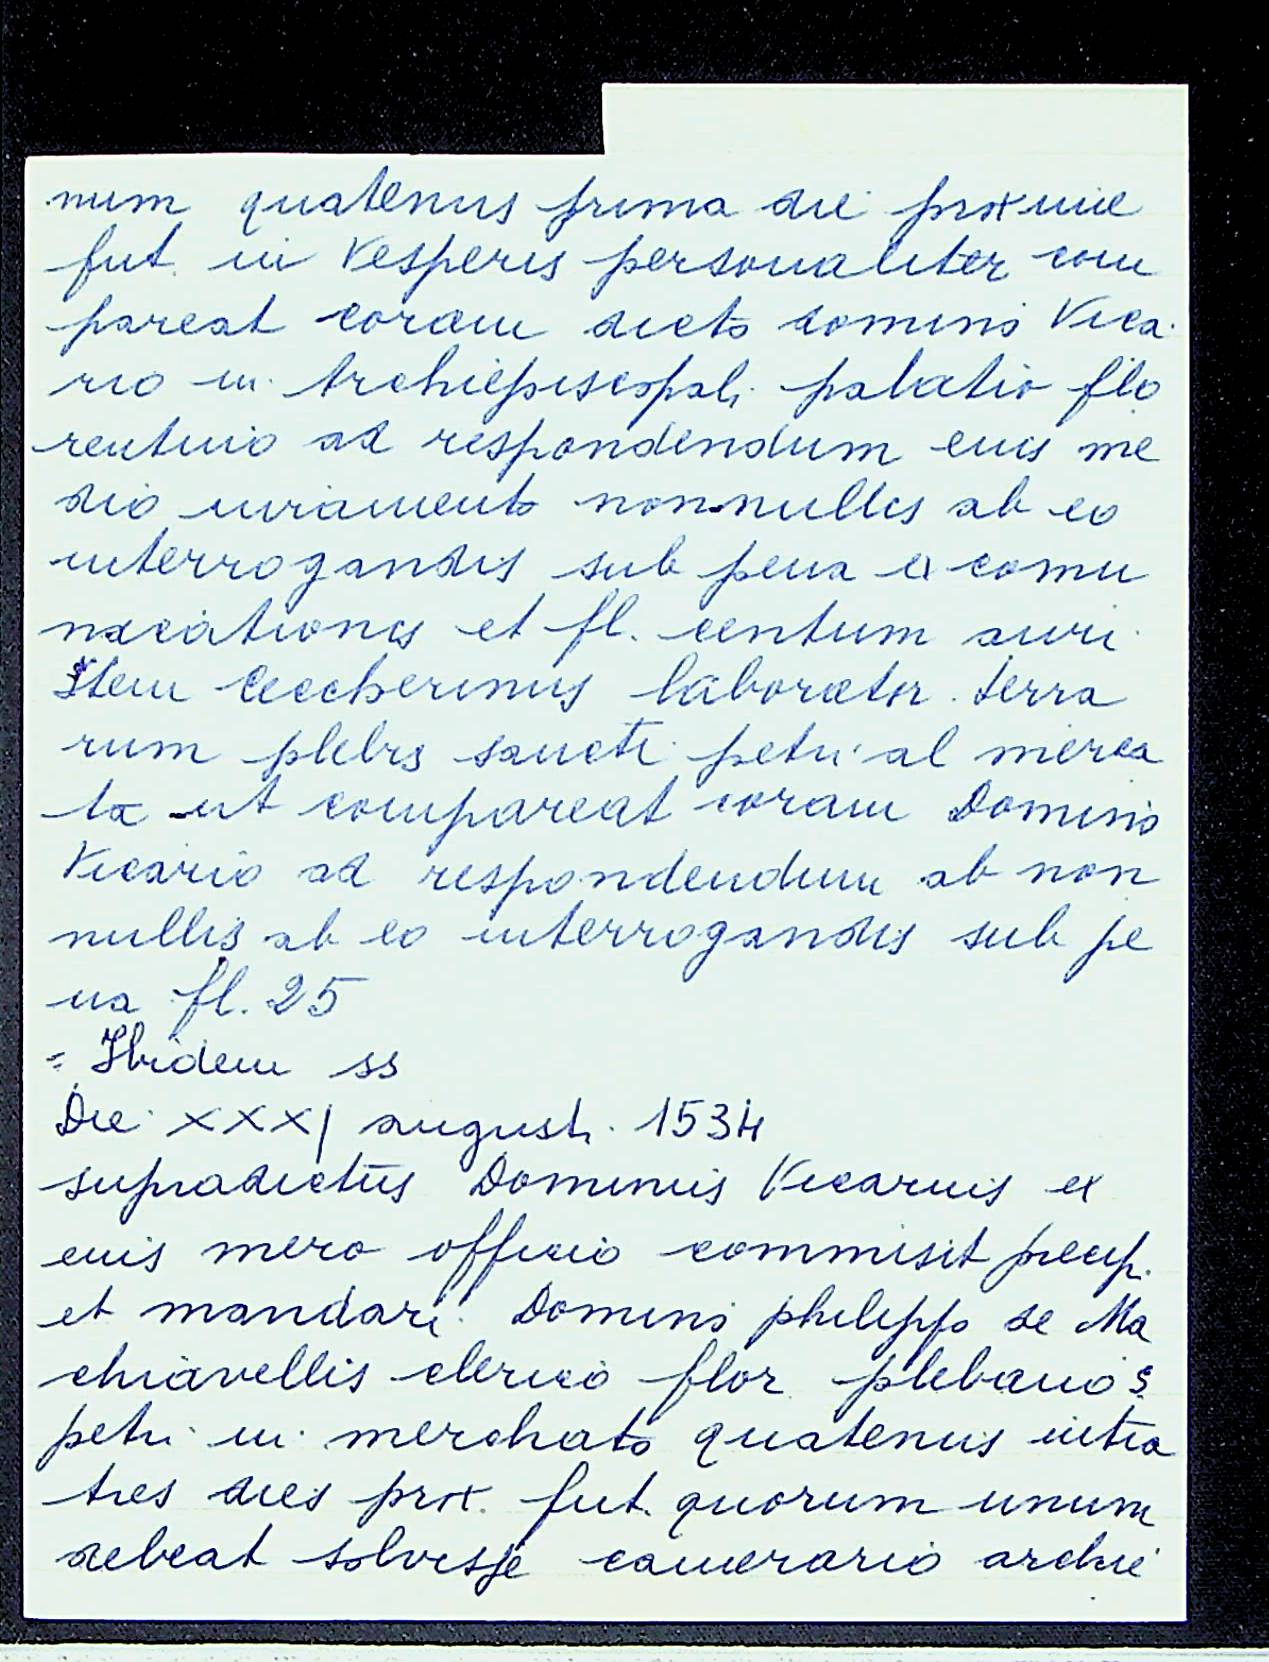 num quatenus prima die proxime
fut. in Vesperis personaliter com
pareat coram dicto domino Vica
rio in Archiepiscopali palatio flo
rentino ad respondendum eius me
dio iuramento nonnullis ab eo
interrogandis sub pena excomu
nicationis et fl. centum auri
Item Ceccherinus laborator terra
rum plebis sancti petri al merca
ta ut compareat coram Domino
Vicario ad respondendum ab non
nullis ab eo interrogandis sub pe
na fl. 25
= Ibidem ss
Die XXXI augusti 1534
supradictus Dominus Vicarius ex
eius mero officio commisit precip.
et mandari Domino philippo de Ma
chiavellis clerico flor plebano S.
petri in merchato quatenus intra
tres dies prox. fut. quorum unum
debeat solvisse camerario archie